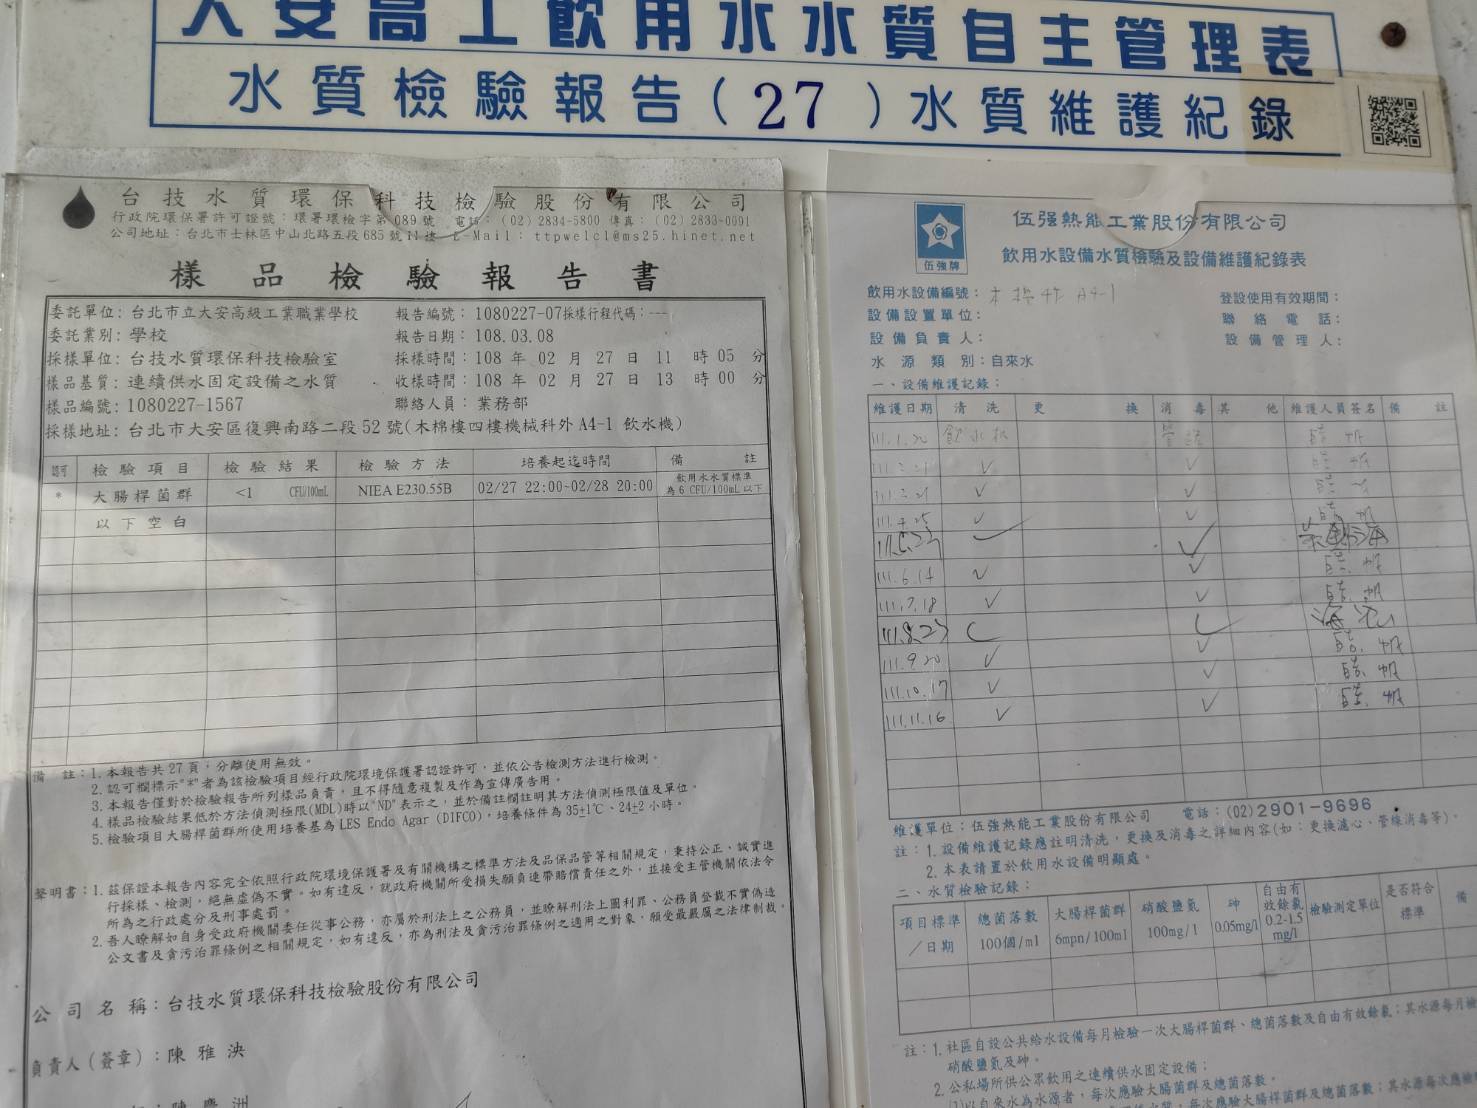 大安高工飲用水水質自主管理表
水質檢驗報告(27)水質維護紀錄
台技水質環保科技檢驗股份有限公司
行政院環保署許可證號：環署環檢字第089號 電話：(02)2834-5800 傳真：(02)2833-0091
公司地址：台北市士林區中山北路五段685號11樓 E-Mail：ttpwelcl@ms25.hinet.net
樣品檢驗報告書
委託單位：台北市立大安高級工業職業學校 報告編號：1080227-07採樣行程代碼：---
委託業別：學校 報告日期：108.03.08
採樣單位：台技水質環保科技檢驗室 採樣時間：108 年 02 月 27 日 11 時 05 分
樣品基質：連續供水固定設備之水質 收樣時間：108 年 02 月 27 日 13 時 00 分
樣品編號：1080227-1567 聯絡人員：業務部
採樣地址：台北市大安區復興南路二段52號(木棉樓四樓機械科外A4-1 飲水機)
認可 檢驗項目 檢驗結果 檢驗方法 培養起迄時間 備註
* 大腸桿菌群 <1 CFU/100mL NIEA E230.55B 02/27 22:00~02/28 20:00 飲用水水質標準為6 CFU/100mL以下
以下空白
備 註：1.本報告共27頁，分離使用無效。
2.認可欄標示"*"者為該檢驗項目經行政院環境保護署認證許可，並依公告檢測方法進行檢測。
3.本報告僅對於檢驗報告所列樣品負責，且不得隨意複製及作為宣傳廣告用。
4.樣品檢驗結果低於方法偵測極限(MDL)時以"ND"表示之，並於備註欄註明其方法偵測極限值及單位。
5.檢驗項目大腸桿菌群所使用培養基為LES Endo Agar (DIFCO)，培養條件為35±1℃、24±2小時。
聲明書：1.茲保證本報告內容完全依照行政院環境保護署及有關機構之標準方法及品保品管等相關規定，秉持公正、誠實進
行採樣、檢測，絕無虛偽不實。如有違反，就政府機關所受損失願負連帶賠償責任之外，並接受主管機關依法令
所為之行政處分及刑事處罰。
2.吾人瞭解如自身受政府機關委任從事公務，亦屬於刑法上之公務員，並瞭解刑法上圖利罪、公務員登載不實偽造
公文書及貪污治罪條例之相關規定，如有違反，亦為刑法及貪污治罪條例之適用之對象，願受最嚴厲之法律制裁。
公司名稱：台技水質環保科技檢驗股份有限公司
負責人(簽章)：陳雅泱
伍強牌
伍强熱能工業股份有限公司
飲用水設備水質檢驗及設備維護紀錄表
飲用水設備編號：木棉 A4-1 登設使用有效期間：
設備設置單位： 聯絡電話：
設備負責人： 設備管理人：
水源類別：自來水
一、設備維護記錄：
維護日期 清洗 更換 消毒 其他 維護人員簽名 備註
111.4.25 ✓ ✓
111.6.14 ✓ ✓
111.7.18 ✓ ✓
111.8.23
111.9.20 ✓ ✓
111.10.17 ✓ ✓
111.11.16 ✓ ✓
維護單位：伍強熱能工業股份有限公司 電話：(02)2901-9696
註：1.設備維護記錄應註明清洗，更換及消毒之詳細內容(如：更換濾心、管線消毒等)。
2.本表請置於飲用水設備明顯處。
二、水質檢驗記錄：
項目標準／日期 總菌落數 100個/ml 大腸桿菌群 6mpn/100ml 硝酸鹽氮 100mg/l 砷 0.05mg/l 自由有效餘氯 0.2-1.5 mg/l 檢驗測定單位 是否符合標準 備
註：1.社區自設公共給水設備每月檢驗一次大腸桿菌群、總菌落數及自由有效餘氯；其水源每月檢
硝酸鹽氮及砷。
2.公私場所供公眾飲用之連續供水固定設備：
(1)以自來水為水源者，每次應驗大腸菌群及總菌落數。